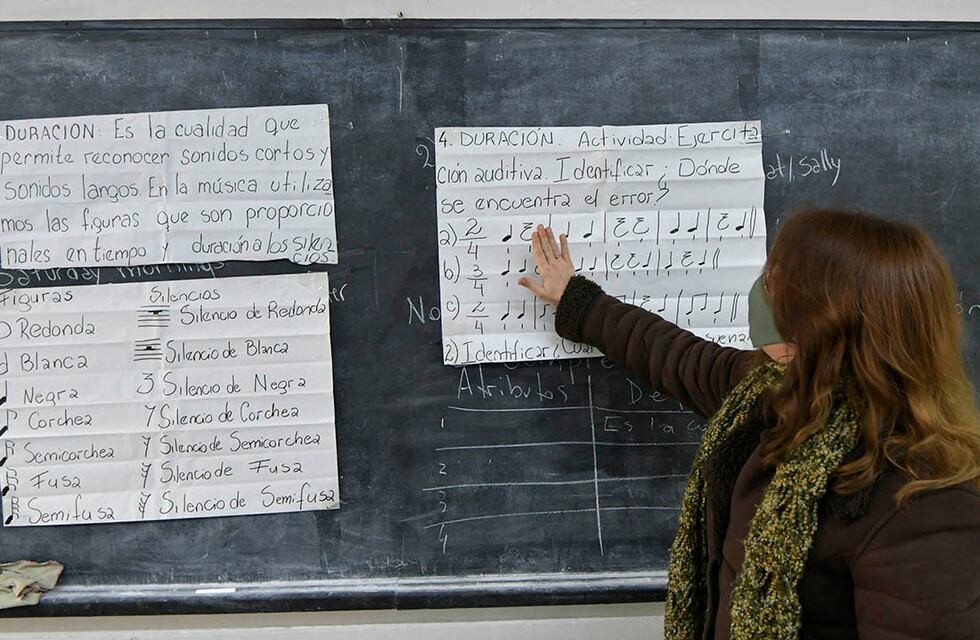 DURACIÓN: Es la cualidad que
permite reconocer sonidos cortos y
sonidos largos. En la música utiliza
mos las figuras que son proporcio
nales en tiempo y duración a los silen
cios.
Saturday mornings
Figuras Silencios
Redonda Silencio de Redonda
Blanca Silencio de Blanca
Negra Silencio de Negra
Corchea Silencio de Corchea
Semicorchea Silencio de Semicorchea
Fusa Silencio de Fusa
Semifusa Silencio de Semifusa
4. DURACIÓN. Actividad: Ejercita
ción auditiva. Identificar ¿Dónde
se encuentra el error?
a) 2/4
b) 3/4
c) 2/4
2) Identificar ¿
at/Sally
No
Atributos De
1 Es la cu
2
3
4